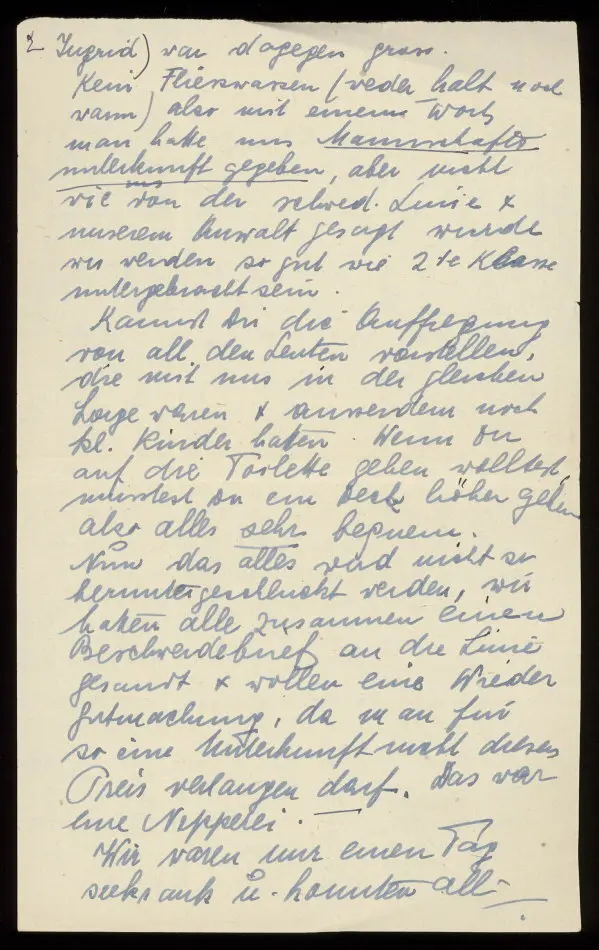 2 Ingrid) war dagegen gross.
Kein Fliesswasser (weder kalt noch
warm) also mit einem Wort,
man hatte uns Mannschafts
unterkunft gegeben, aber nicht
wie uns von der schwed. Linie &
unserem Anwalt gesagt wurde
wir werden so gut wie 2te Klasse
untergebracht sein.
Kannst Du die Aufregung
von all den Leuten vorstellen,
die mit uns in der gleichen
Lage waren & ausserdem noch
kl. Kinder hatten. Wenn Du
auf die Toilette gehen wolltest,
musstest Du ein Deck höher gehen
also alles sehr bequem.
Nun das alles wird nicht so
heruntergeschluckt werden, wir
haben alle zusammen einen
Beschwerdebrief an die Linie
gesandt & wollen eine Wieder
gutmachung, da man für
so eine Unterkunft nicht diesen
Preis verlangen darf. Das war
eine Nepperei. —
Wir waren nur einen Tag
seekrank u. konnten all-